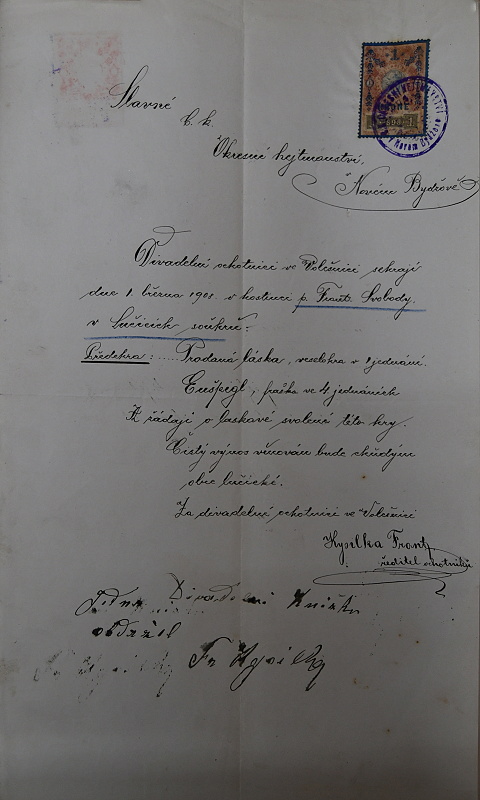 Slavné
c. k.
Okresní hejtmanství,
Novém Bydžově
1
Divadelní ochotníci ve Volešnici sehrají
dne 1. března 1908. v hostinci p. Frant. Svobody,
v Lučicích soukr.:
Předehra: ..... Prodaná láska, veselohra v 1 jednání.
Enšpígl, fraška ve 4 jednáních
K žádají o laskavé svolení této hry.
Čistý výnos věnován bude chudým
obce lučické.
Za divadelní ochotníci ve Volešnici
Kyselka Frant.
ředitel ochotníků
Divadelní Knížku
obdržel
Fr Kyselka